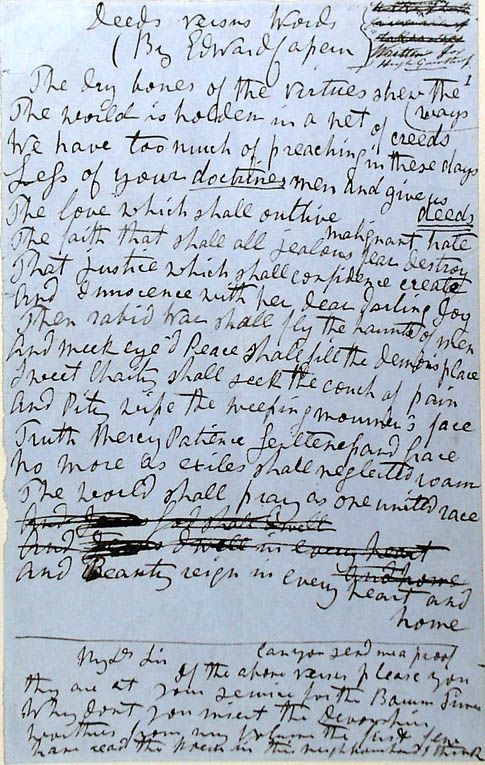 Deeds versus Words
(By Edward Capern
Written for
1
The dry bones of the virtues shew the
(ways
The world is holden in a net of creeds
We have too much of preaching in these days
Less of your doctrines men and give us
deeds
The love which shall outlive malignant hate
The faith that shall all jealous fear destroy
That Justice which shall confidence create
And Innocence with her dear darling Joy
Then rabid War shall fly the haunts of men
And meek eye'd Peace shall fill the demons place
Sweet Charity shall seek the couch of pain
And Pity wipe the weeping mourner's face
Truth Mercy Patience Gentleness and Grace
No more as exiles shall neglected roam
The world shall pray as one united race
And God shall dwell
And dwell in every heart
and home
And Beauty reign in every heart and
home
My Dr Sir Can you send me a proof
of the above verses please you
they are at your service for the Times
Why don't you insert the Devonshire
Worthies from my volume the
have read the Poem in this neighbourhood think